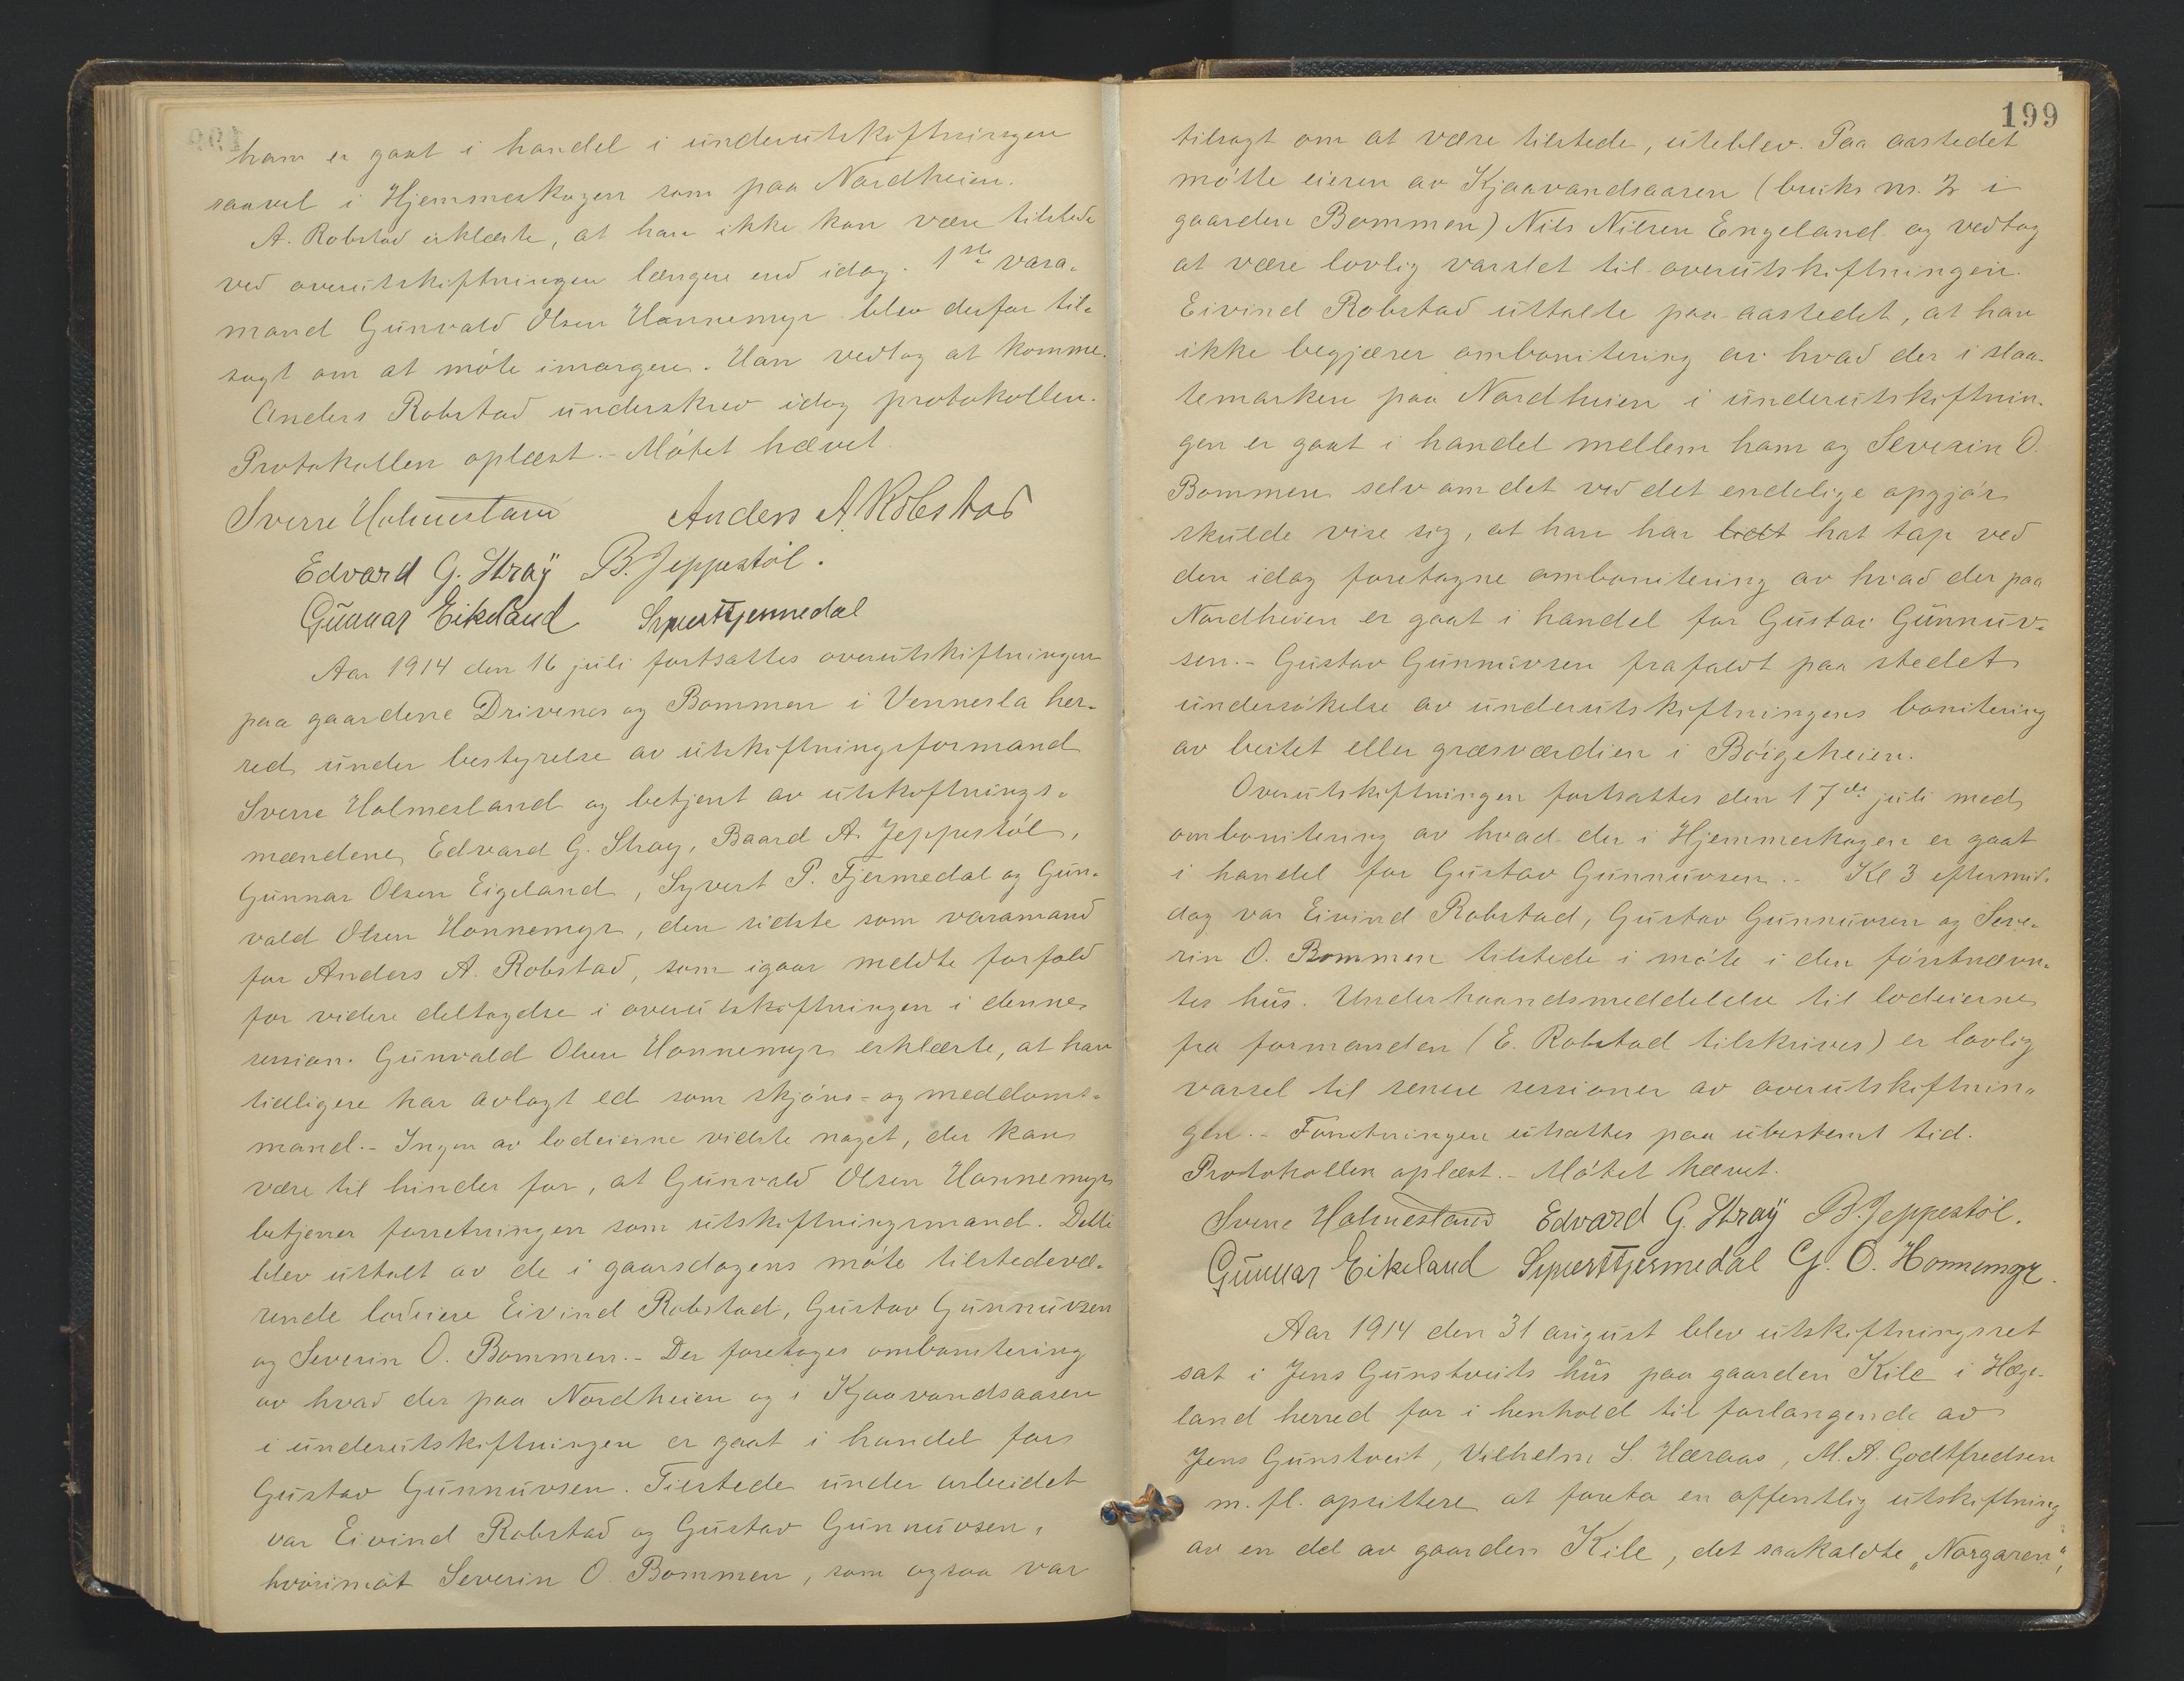 ham er gaat i handel i underutskiftningen
saavel i Hjemmeskogen som paa Nordheien.
A. Robstad erklærte, at han ikke kan være tilstede
ved overutskiftningen længere end idag. 1ste vara-
mand Gunvald Olsen Honnemyr blev derfor til-
sagt om at møte imorgen. Han vedtog at komme.
Anders Robstad underskrev idag protokollen.
Protokollen oplæst. - Møtet hævet.
Sverre Holmesland Anders A Robstad
Edvard G. Stray B. Jeppestøl.
Gunnar Eikeland Syvert Tjermedal
Aar 1914 den 16 juli fortsattes overutskiftningen
paa gaardene Drivenes og Bommen i Vennesla her-
red under bestyrelse av utskiftningsformand
Sverre Holmesland og betjent av utskiftnings-
mændene Edvard G. Stray, Baard A. Jeppestøl,
Gunnar Olsen Eigeland, Syvert P. Tjermedal og Gun-
vald Olsen Honnemyr, den sidste som varamand
for Anders A. Robstad, som igaar meldte forfald
for videre deltagelse i overutskiftningen i denne
session. Gunvald Olsen Honnemyr erklærte, at han
tidligere har avlagt ed som skjøns- og meddoms-
mand. - Ingen av lodeierne vidste noget, der kan
være til hinder for, at Gunvald Olsen Honnemyr
betjener forretningen som utskiftningsmand. Dette
blev uttalt av de i gaarsdagens møte tilstedevæ-
rende lodeiere Eivind Robstad, Gustav Gunnuvsen
og Severin O. Bommen. - Der foretages ombonitering
av hvad der paa Nordheien og i Kjaavandsaasen
i underutskiftningen er gaat i handel for
Gustav Gunnuvsen. Tilstede under arbeidet
var Eivind Robstad og Gustav Gunnuvsen,
hvorimot Severin O. Bommen, som ogsaa var
199
tilsagt om at være tilstede, uteblev. Paa aastedet
møtte eieren av Kjaavandsaasen (bruks nr. 2 i
gaarden Bommen) Nils Nilsen Engeland og vedtog
at være lovlig varslet til overutskiftningen.
Eivind Robstad uttalte paa aastedet, at han
ikke begjærer ombonitering av hvad der i slaa-
temarken paa Nordheien i underutskiftnin-
gen er gaat i handel mellem ham og Severin O.
Bommen selv om det ved det endelige opgjør
skulde vise sig, at han har lidt hat tap ved
den idag foretagne ombonitering av hvad der paa
Nordheien er gaat i handel for Gustav Gunnuv-
sen. - Gustav Gunnuvsen frafaldt paa stedet
undersøkelse av underutskiftningens bonitering
av beitet eller græsværdien i Bøigeheien.
Overutskiftningen fortsattes den 17de juli med
ombonitering av hvad der i Hjemmeskogen er gaat
i handel for Gustav Gunnuvsen. - Kl 3 eftermid-
dag var Eivind Robstad, Gustav Gunnuvsen og Seve-
rin O. Bommen tilstede i møte i den førstnævn-
tes hus. Underhaandsmeddelelse til lodeierne
fra formanden (E. Robstad tilskrives) er lovlig
varsel til senere sessioner av overutskiftnin-
gen. - Forretningen utsattes paa ubestemt tid.
Protokollen oplæst. - Møtet hævet.
Sverre Holmesland Edvard G. Stray B. Jeppestøl.
Gunnar Eikeland Syvert Tjermedal G. O. Honnemyr.
Aar 1914 den 31 august blev utskiftningsret
sat i Jens Gunstveits hus paa gaarden Kile i Hæge-
land herred for i henhold til forlangende av
Jens Gunstveit, Vilhelm S. Hæraas, M. A. Godtfredsen
m. fl. opsittere at foreta en offentlig utskiftning
av en del av gaarden Kile, det saakaldte „Norgaren",